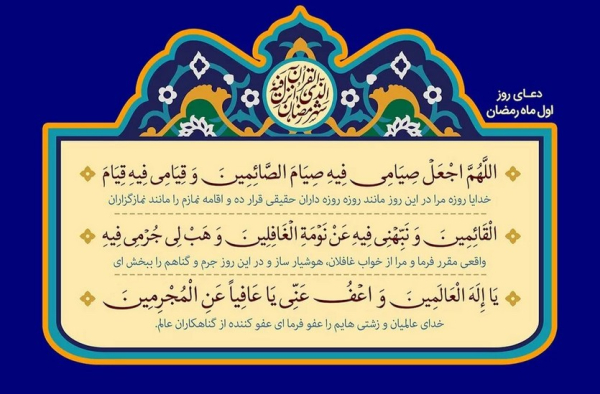 شهر رمضان الذی انزل فیه القرآن
دعـای روز
اول ماه رمضان
اللَّهُمَّ اجْعَلْ صِيَامِی فِيهِ صِيَامَ الصَّائِمِينَ وَ قِيَامِی فِيهِ قِيَامَ
خدایا روزه مرا در این روز مانند روزه روزه داران حقیقی قرار ده و اقامه نمازم را مانند نمازگزاران
الْقَائِمِينَ وَ نَبِّهْنِی فِيهِ عَنْ نَوْمَةِ الْغَافِلِينَ وَ هَبْ لِی جُرْمِی فِيهِ
واقعی مقرر فرما و مرا از خواب غافلان، هوشیار ساز و در این روز جرم و گناهم را ببخش ای
يَا إِلَهَ الْعَالَمِينَ وَ اعْفُ عَنِّی يَا عَافِياً عَنِ الْمُجْرِمِينَ
خدای عالمیان و زشتی هایم را عفو فرما ای عفو کننده از گناهکاران عالم.